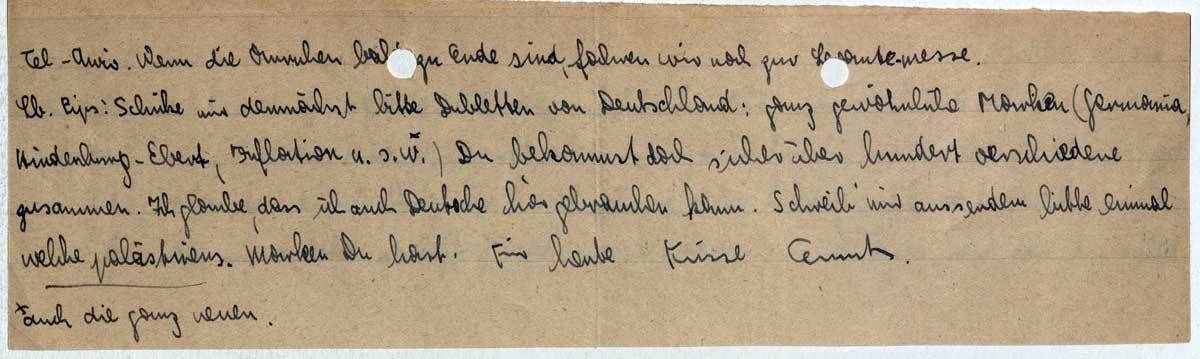 Tel-Aviv. Wenn die Unruhen bald zu Ende sind, fahren wir noch zur Levantemesse.
Lb. Eips: Schicke mir demnächst bitte Dubletten von Deutschland: ganz gewöhnliche Marken (Germania,
Hindenburg-Ebert, Inflation u. s. w.ˣ) Du bekommst doch sicher über hundert verschiedene
zusammen. Ich glaube, dass ich auch Deutsche hier gebrauchen kann. Schreib mir ausserdem bitte einmal
welche palästinens. Marken Du hast. Für heute Küsse
ˣauch die ganz neuen.